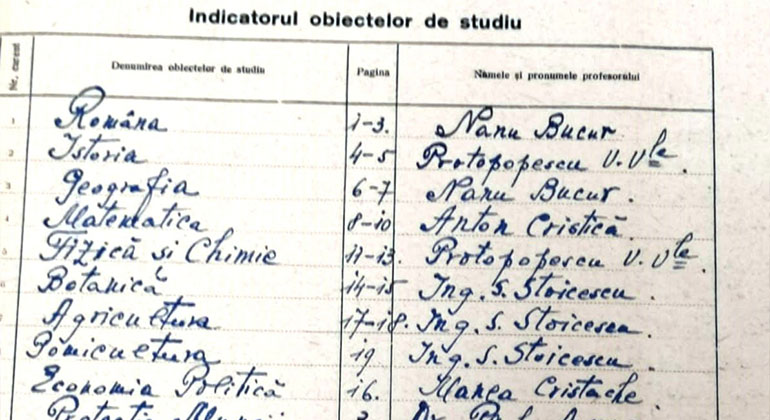 Indicatorul obiectelor de studiu
Nr. curent Denumirea obiectelor de studiu Pagina Numele și pronumele profesorului
1 Româna 1-3. Nanu Bucur
2 Istoria 4-5 Protopopescu V. Vle.
3 Geografia 6-7 Nanu Bucur.
4 Matematica 8-10 Anton Cristică.
5 Fizică si Chimie 11-13. Protopopescu V. Vle.
6 Botanică 14-15 Ing. S. Stoicescu.
7 Agricultura 17-18. Ing. S. Stoicescu.
Pomicultura 19 Ing. S. Stoicescu.
Economia Politică 16. Manea Cristache.